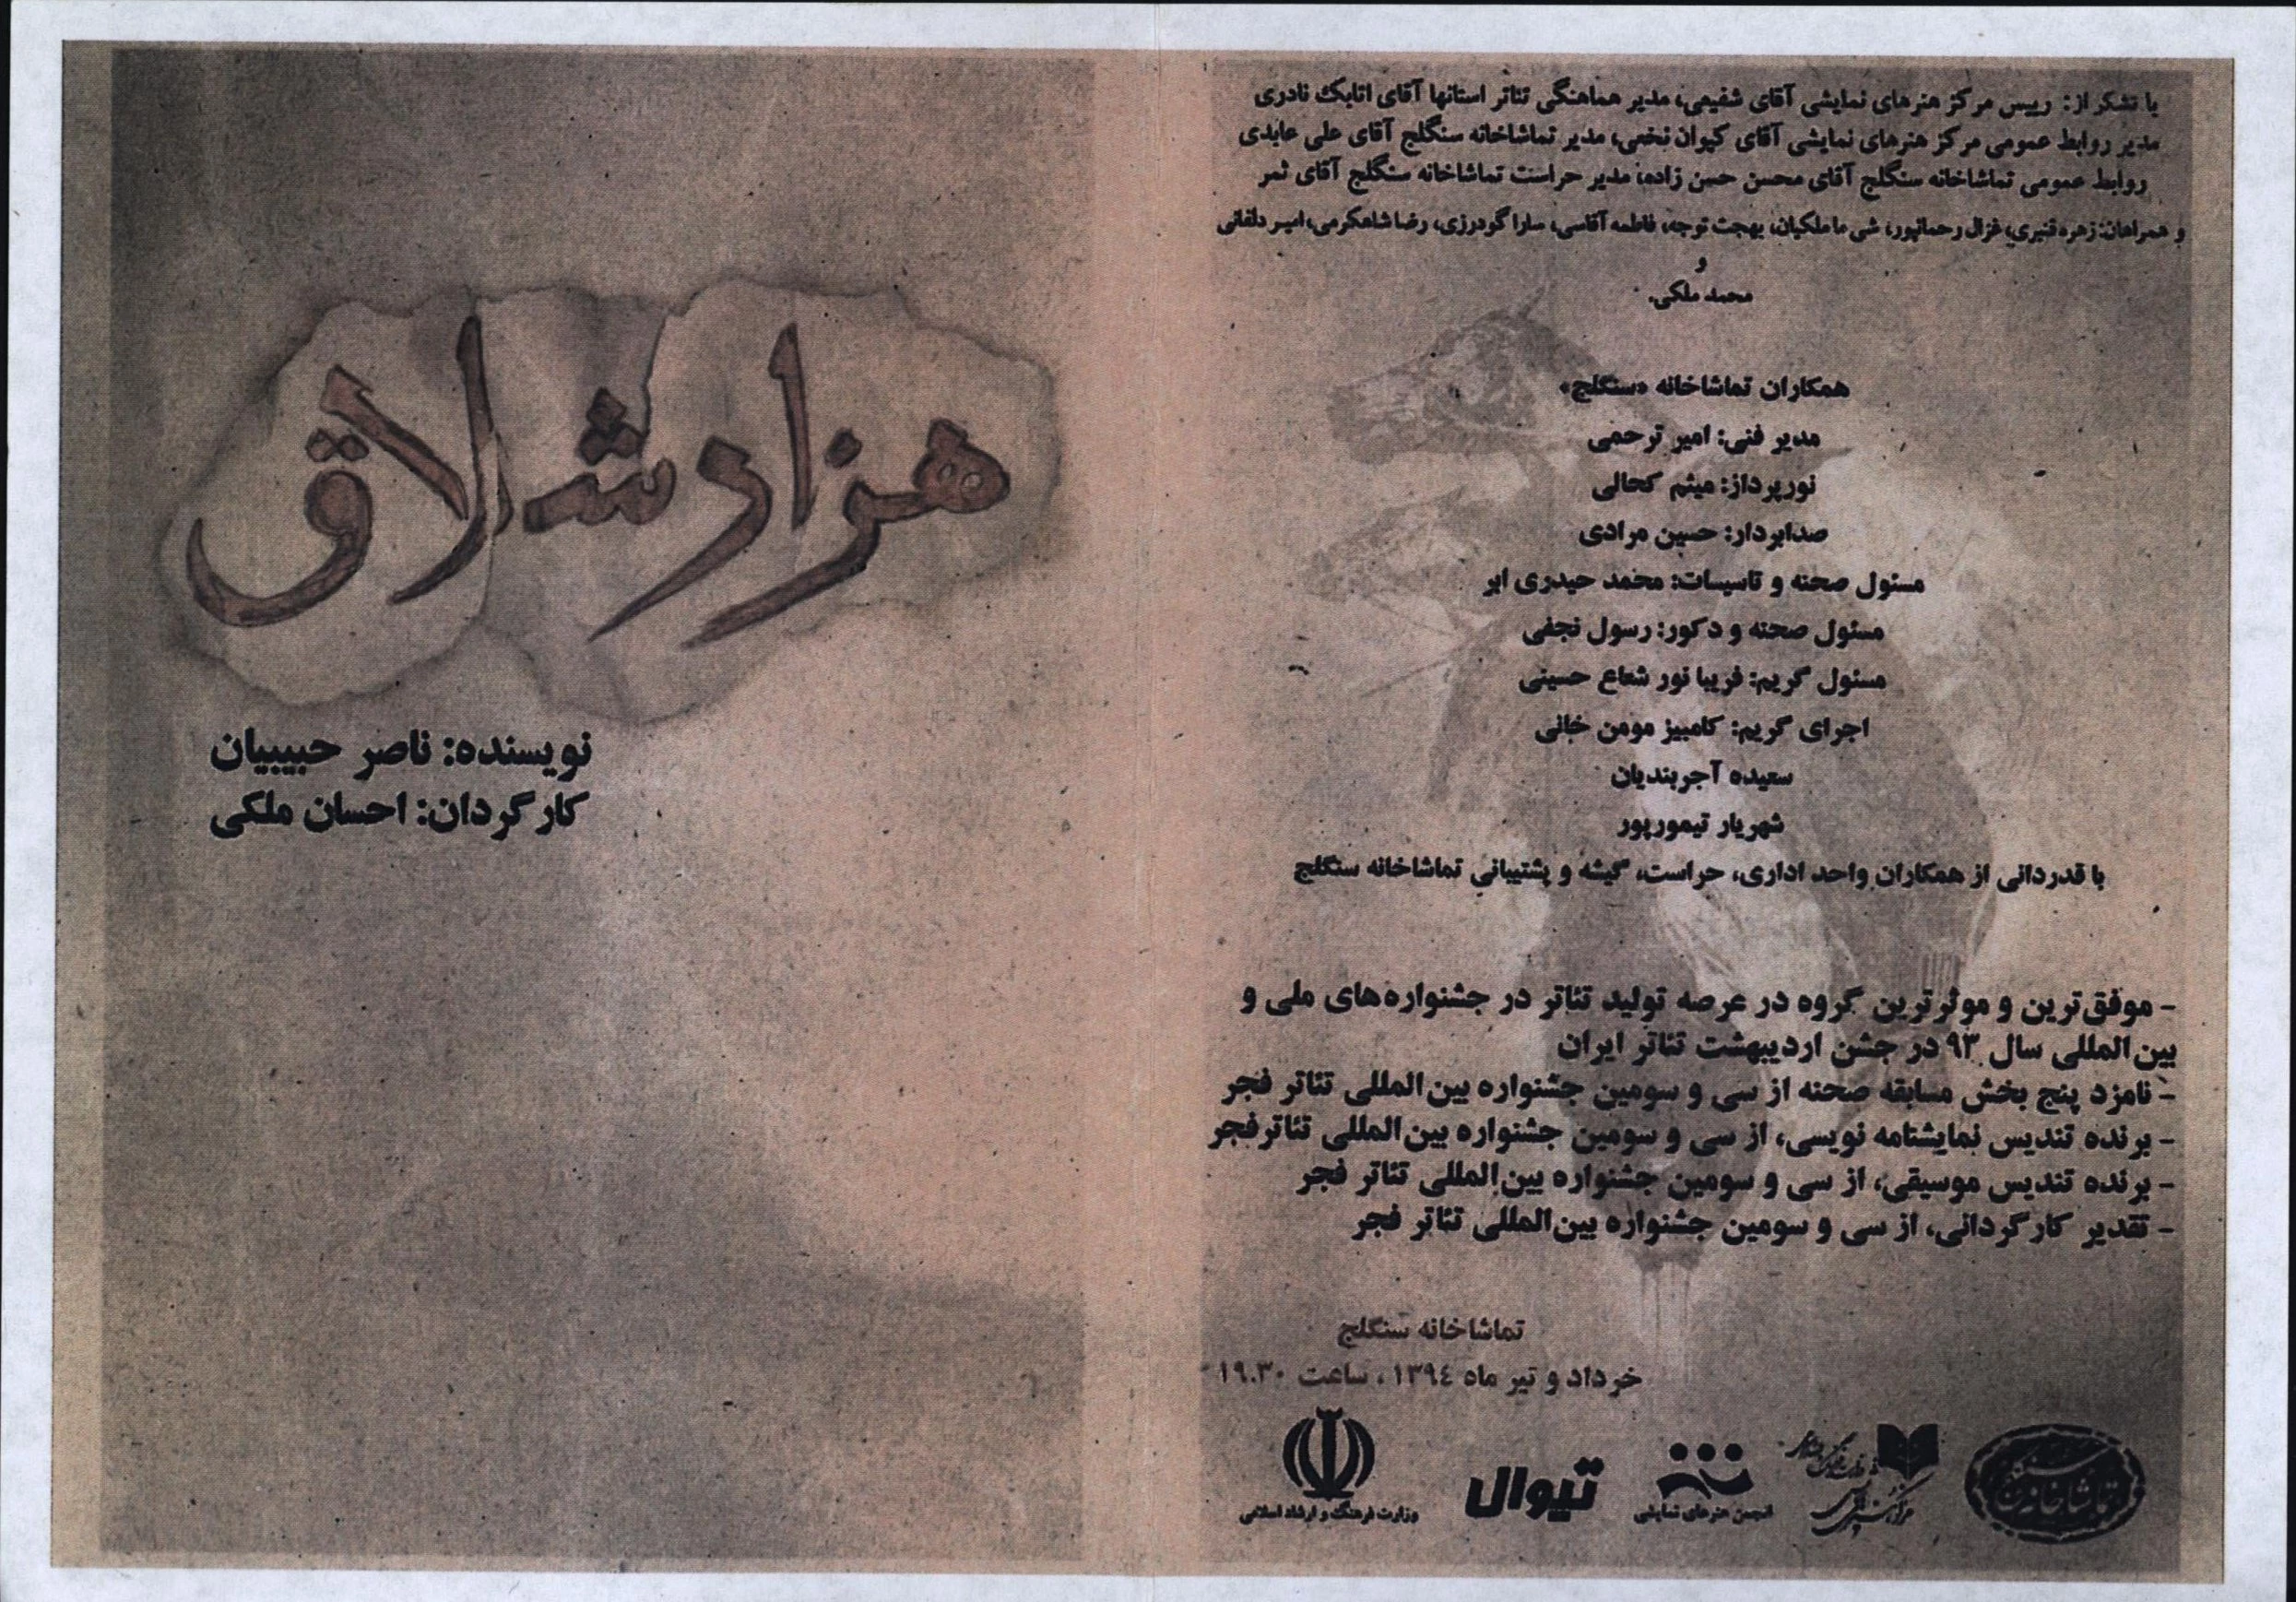 هزار شلاق
نویسنده: ناصر حبیبیان
کارگردان: احسان ملکی
با تشکر از: رییس مرکز هنرهای نمایشی آقای شفیعی، مدیر هماهنگی تئاتر استانها آقای اتابک نادری
مدیر روابط عمومی مرکز هنرهای نمایشی آقای کیوان نخعی، مدیر تماشاخانه سنگلج آقای علی عابدی
روابط عمومی تماشاخانه سنگلج آقای محسن حسن زاده، مدیر حراست تماشاخانه سنگلج آقای ثمر
و همراهان: زهره قنبری، غزال رحمانپور، شی ما ملکیان، بهجت توجه، فاطمه آقاسی، سارا گودرزی، رضا شاهکرمی، امیر دلفانی
و
محمد ملکی.
همکاران تماشاخانه «سنگلج»
مدیر فنی: امیر ترحمی
نورپرداز: میثم کحالی
صدابردار: حسین مرادی
مسئول صحنه و تاسیسات: محمد حیدری ابر
مسئول صحنه و دکور: رسول نجفی
مسئول گریم: فریبا نور شعاع حسینی
اجرای گریم: کامبیز مومن خانی
سعیده آجربندیان
شهریار تیمورپور
با قدردانی از همکاران واحد اداری، حراست، گیشه و پشتیبانی تماشاخانه سنگلج
- موفق‌ترین و موثرترین گروه در عرصه تولید تئاتر در جشنواره‌های ملی و
بین‌المللی سال ۹۳ در جشن اردیبهشت تئاتر ایران
- نامزد پنج بخش مسابقه صحنه از سی و سومین جشنواره بین‌المللی تئاتر فجر
- برنده تندیس نمایشنامه نویسی، از سی و سومین جشنواره بین‌المللی تئاتر فجر
- برنده تندیس موسیقی، از سی و سومین جشنواره بین‌المللی تئاتر فجر
- تقدیر کارگردانی، از سی و سومین جشنواره بین‌المللی تئاتر فجر
تماشاخانه سنگلج
خرداد و تیر ماه ۱۳۹٤ ، ساعت ۱۹.۳۰
تماشاخانه سنگلج
انجمن هنرهای نمایشی
تیوال
وزارت فرهنگ و ارشاد اسلامی